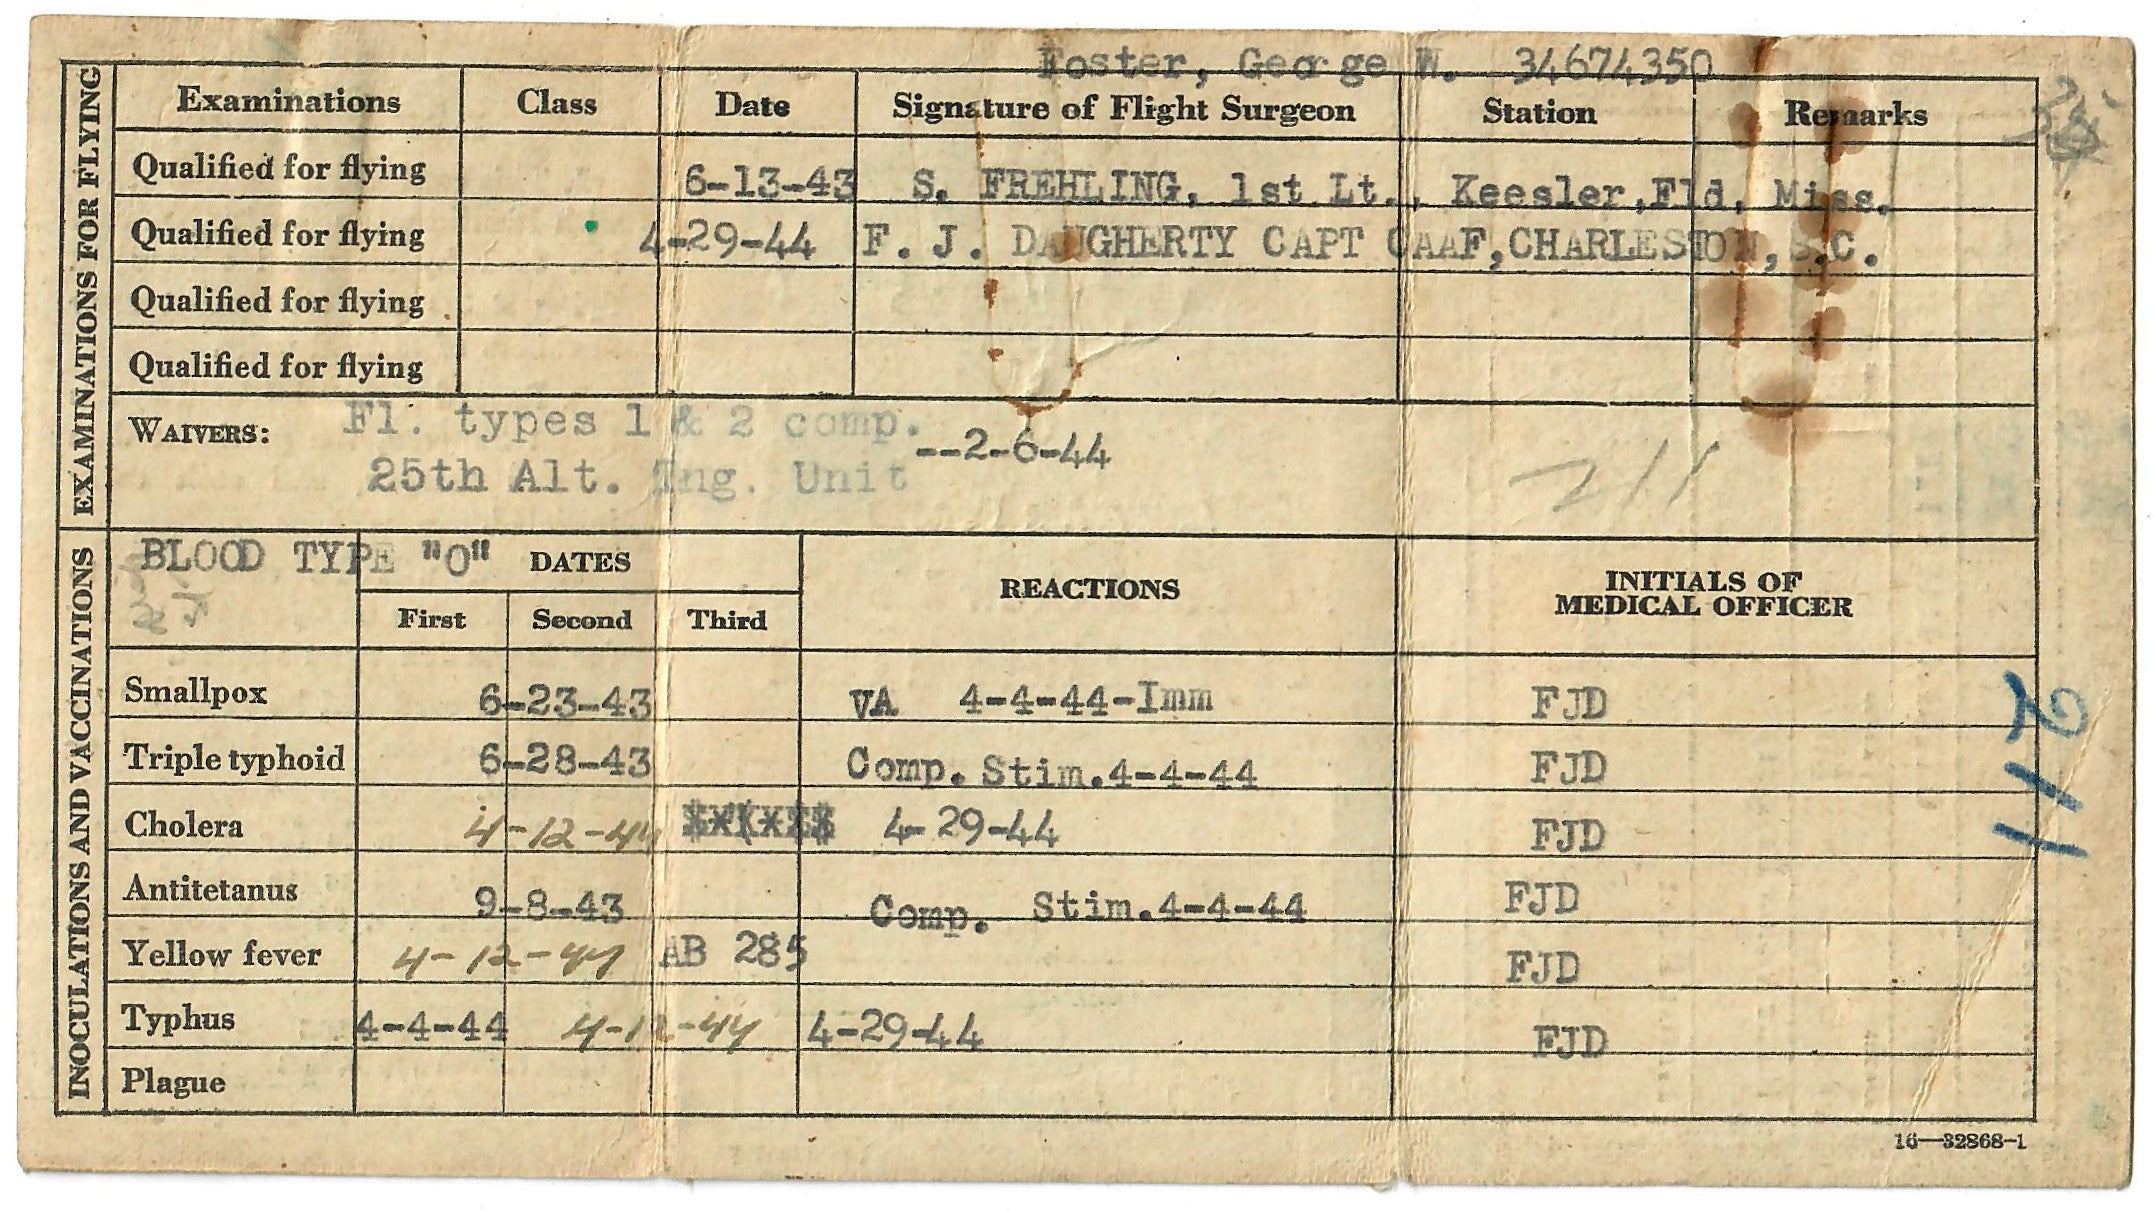 Foster, George W. 34674350
EXAMINATIONS FOR FLYING
Examinations Class Date Signature of Flight Surgeon Station Remarks
Qualified for flying 6-13-43 S. FREHLING, 1st Lt., Keesler,Fld, Miss.
Qualified for flying 4-29-44 F. J. DAUGHERTY CAPT CAAF,CHARLESTON,S.C.
Qualified for flying
Qualified for flying
WAIVERS: Fl. types 1 & 2 comp. --2-6-44
25th Alt. Tng. Unit
211
INOCULATIONS AND VACCINATIONS
BLOOD TYPE "O" DATES REACTIONS INITIALS OF MEDICAL OFFICER
First Second Third
Smallpox 6-23-43 VA 4-4-44-Imm FJD
Triple typhoid 6-28-43 Comp. Stim.4-4-44 FJD
Cholera 4-12-44 4-29-44 FJD
Antitetanus 9-8-43 Comp. Stim.4-4-44 FJD
Yellow fever 4-12-44 AB 285 FJD
Typhus 4-4-44 4-12-44 4-29-44 FJD
Plague
211
16—32868-1